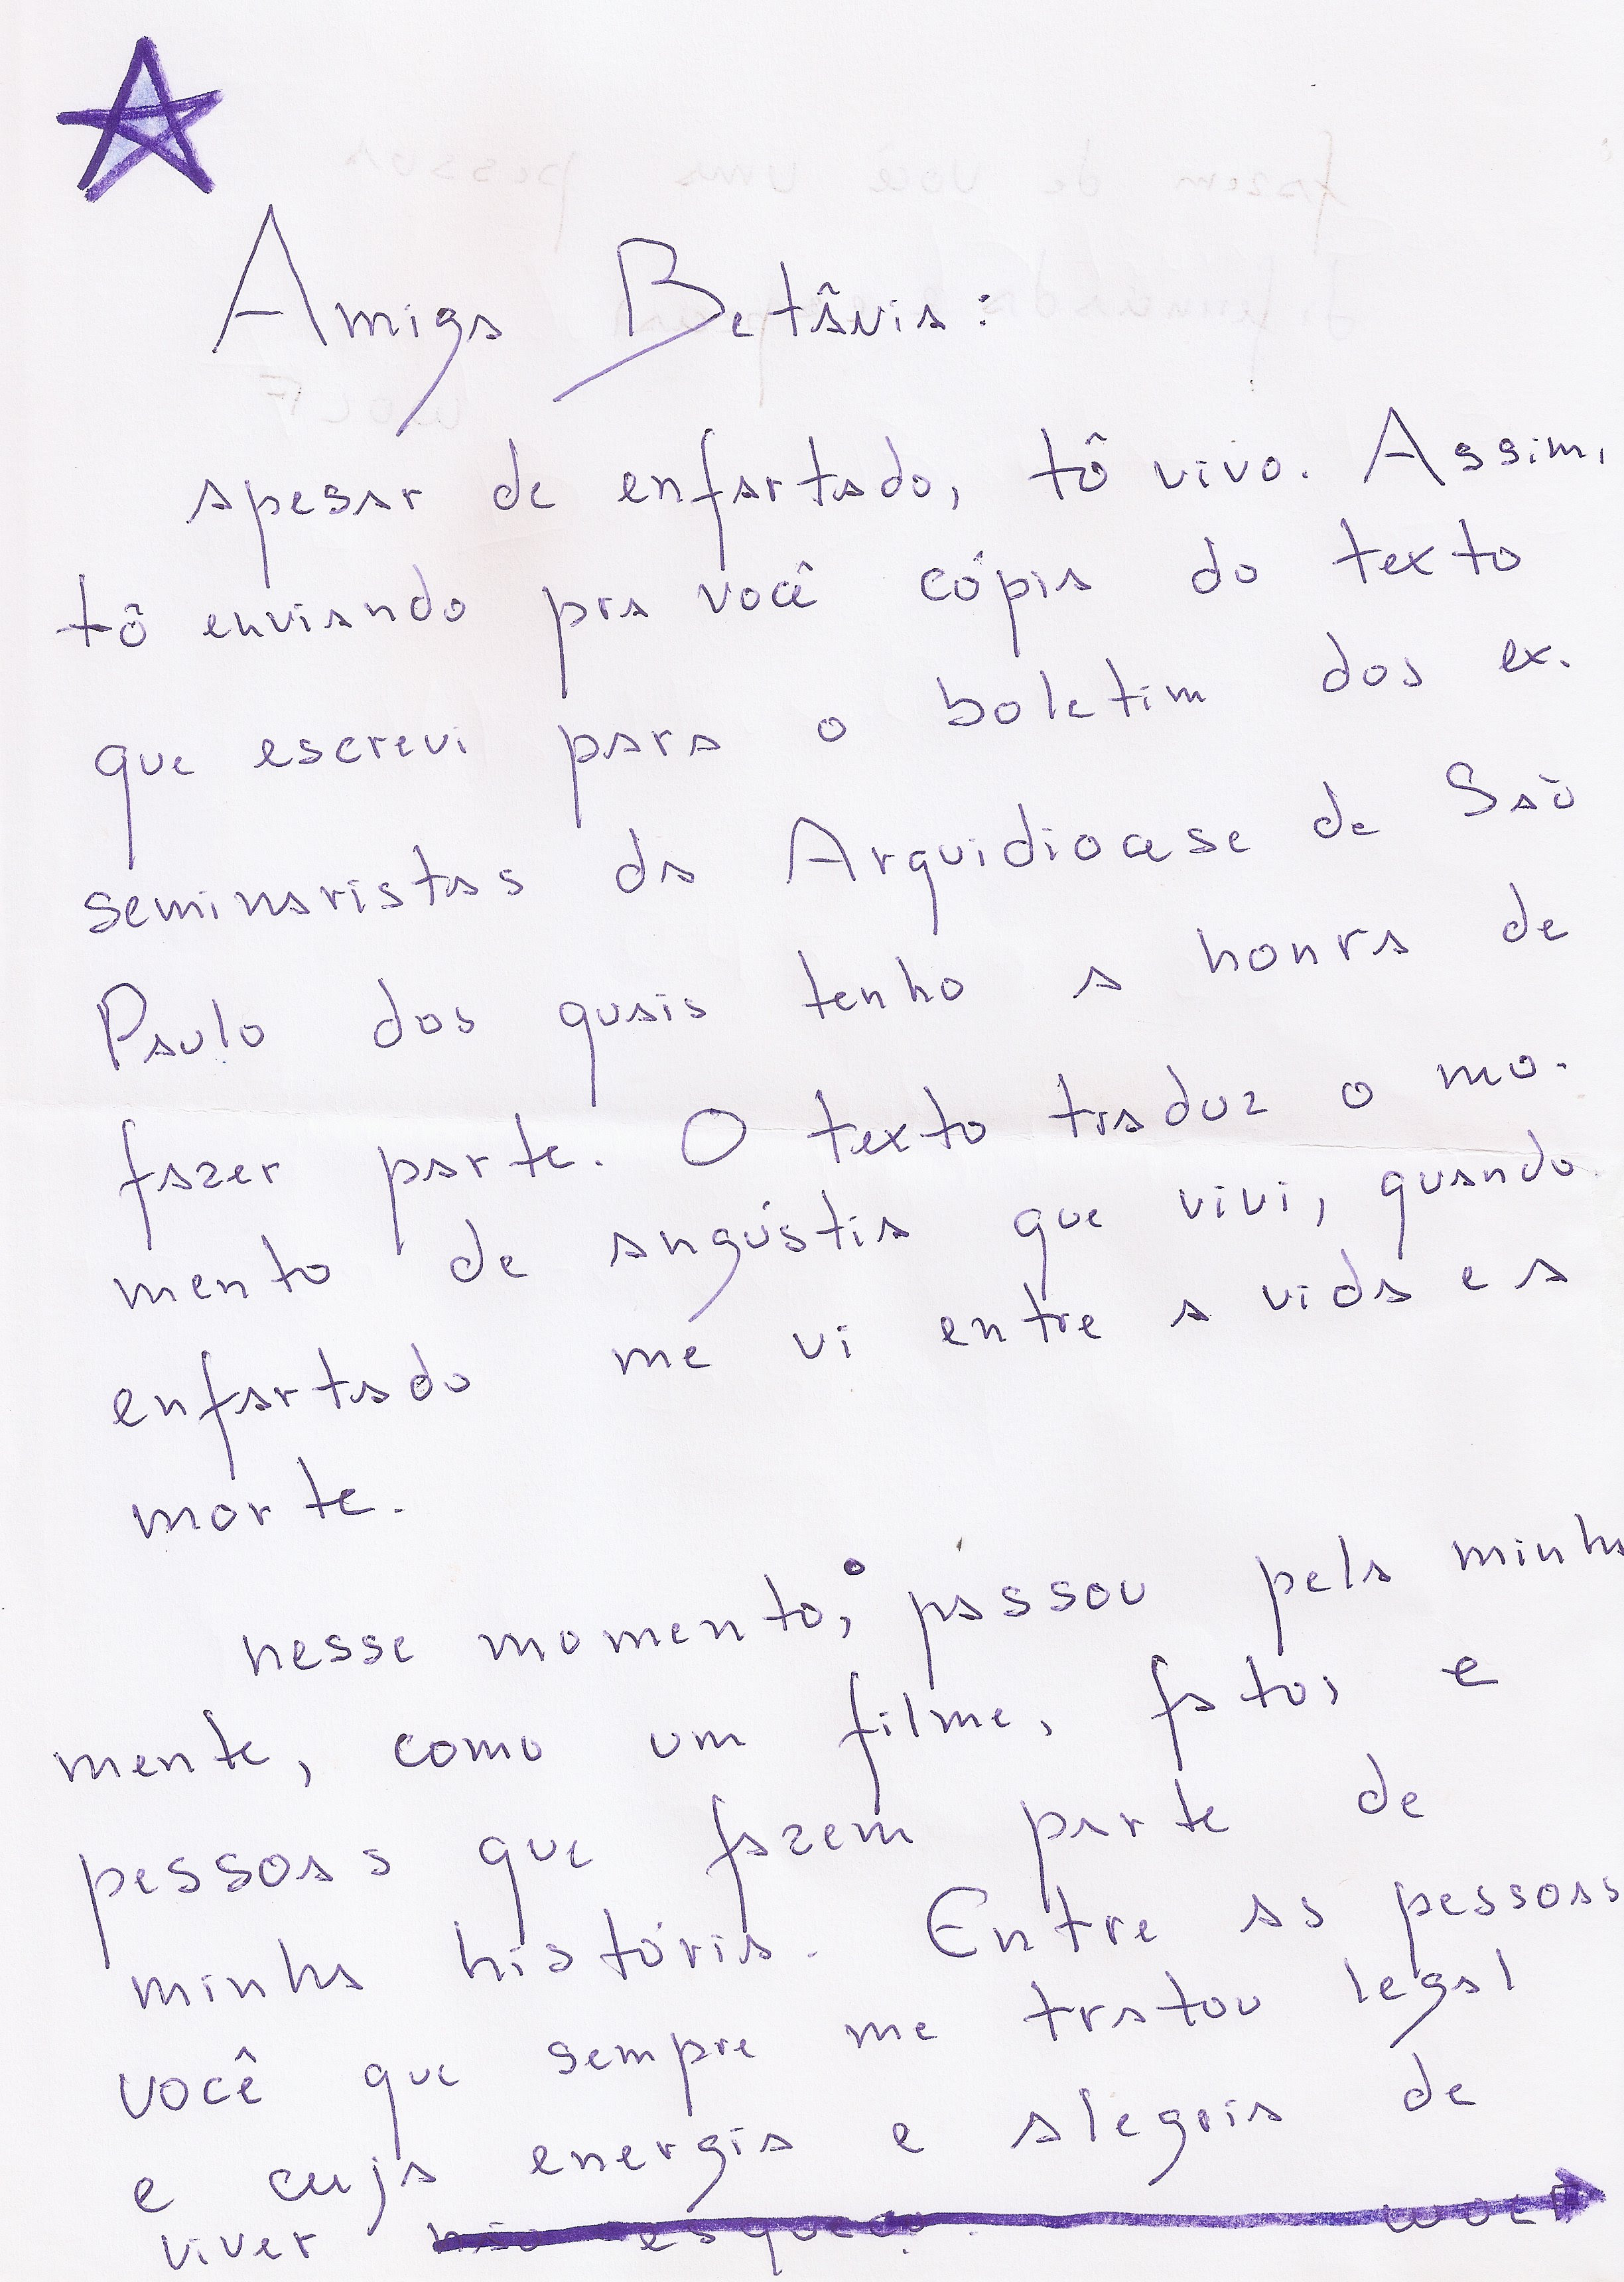 Amiga Betânia:
apesar de enfartado, tô vivo. Assim,
tô enviando pra você cópia do texto
que escrevi para o boletim dos ex-
seminaristas da Arquidiocese de São
Paulo dos quais tenho a honra de
fazer parte. O texto traduz o mo-
mento de angústia que vivi, quando
enfartado me vi entre a vida e a
morte.
nesse momento, passou pela minha
mente, como um filme, fatos e
pessoas que fazem parte de
minha história. Entre as pessoas
você que sempre me tratou legal
e cuja energia e alegria de
viver não esqueço.